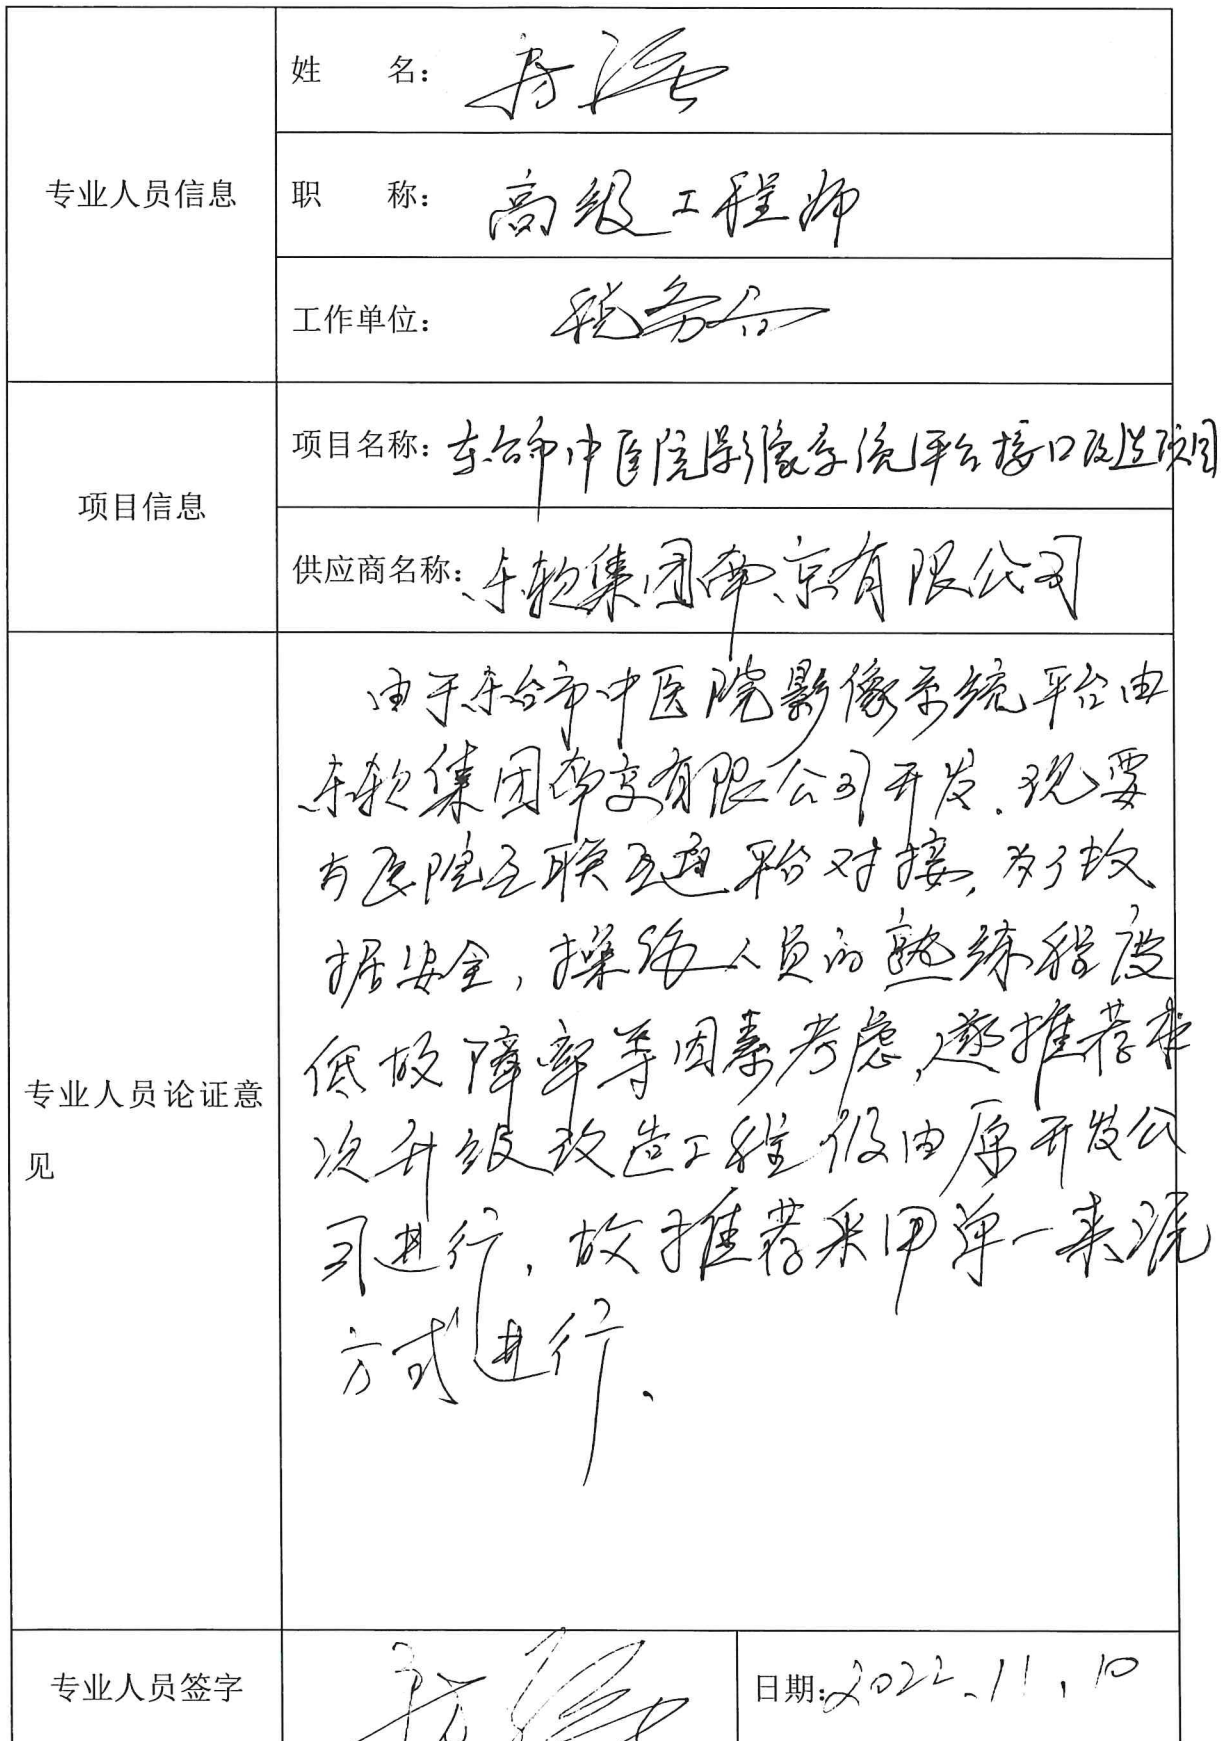 姓 名：
专业人员信息
职 称： 高级工程师
工作单位： 税务局
项目名称：东台市中医院影像系统平台接口改造项目
项目信息
供应商名称：东软集团南京有限公司
由于东台市中医院影像系统平台由
东软集团南京有限公司开发，现要
与医院互联互通平台对接，为了数
据安全，操作人员的熟练程度
低故障率等因素考虑，遂推荐本
次升级改造工程仅由原开发公
司进行，故推荐采用单一来源
方式进行.
专业人员论证意
见
专业人员签字
日期：2022.11.10